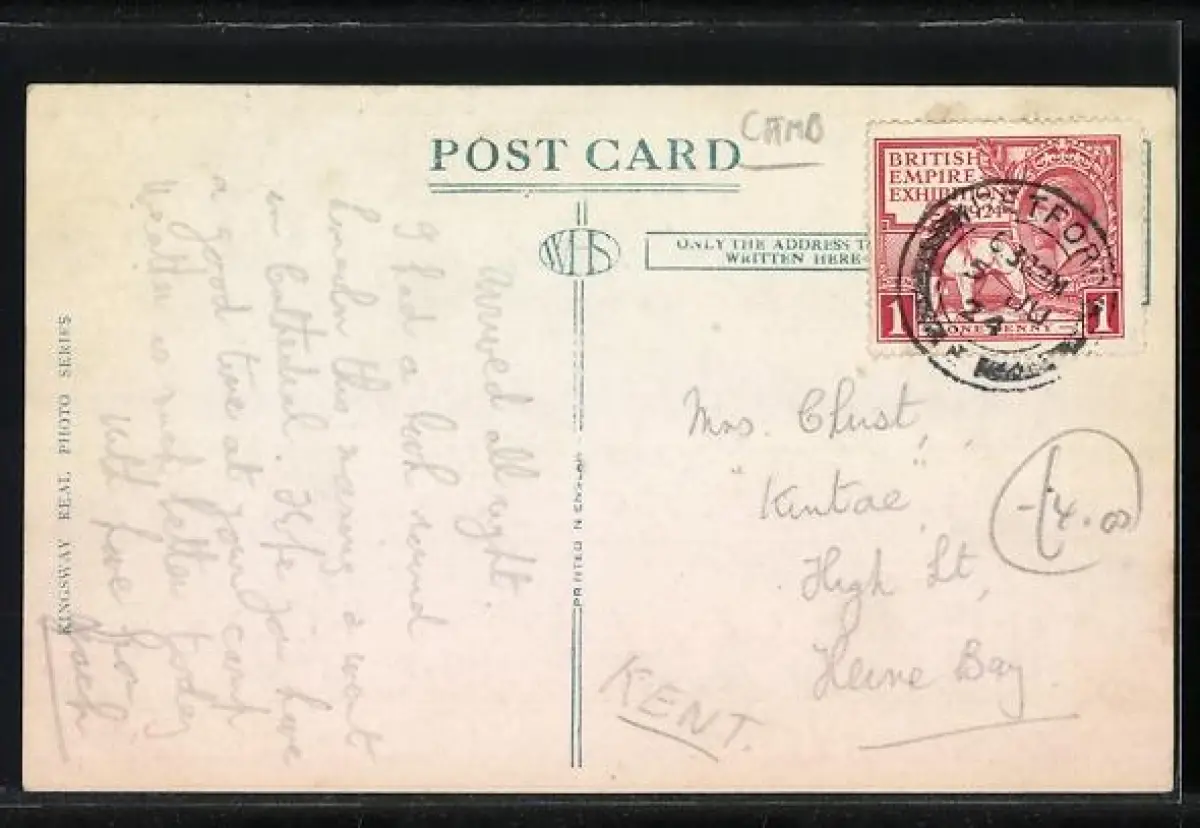 POST CARD
CAMB
BRITISH
EMPIRE
EXHIBITION
1924
1 ONE PENNY 1
6 30 PM
JU
24
WHS
ONLY THE ADDRESS TO
WRITTEN HERE
Arrived all right.
I had a look round
this morning & went
in Cathedral. Hope you have
a good time at your camp
Weather is much better today
with love from
Jack
Mrs. Clust,
"Kintae"
High St,
Herne Bay
KENT.
-/4.00
KINGSWAY REAL PHOTO SERIES
PRINTED IN ENGLAND